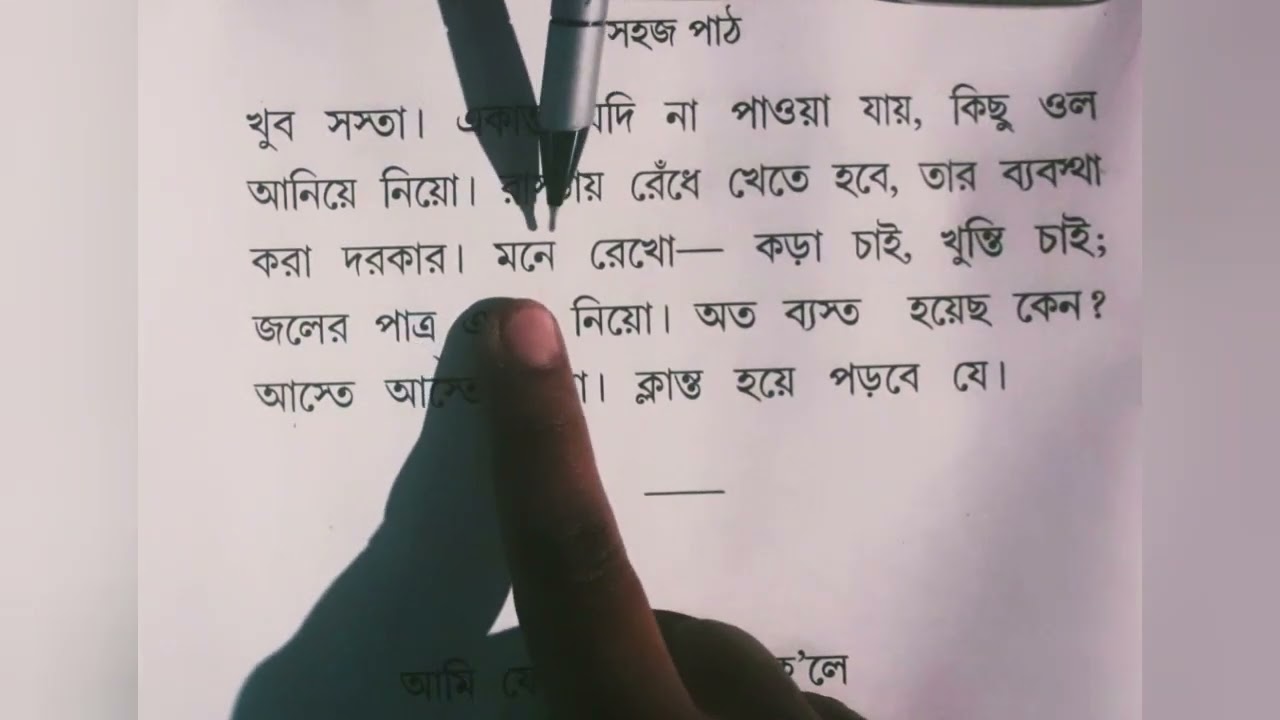 সহজ পাঠ
খুব সস্তা। যদি না পাওয়া যায়, কিছু ওল
আনিয়ে নিয়ো। রেঁধে খেতে হবে, তার ব্যবস্থা
করা দরকার। মনে রেখো— কড়া চাই, খুন্তি চাই;
জলের পাত্র নিয়ো। অত ব্যস্ত হয়েছ কেন?
আস্তে আস্তে ক্লান্ত হয়ে পড়বে যে।
আমি